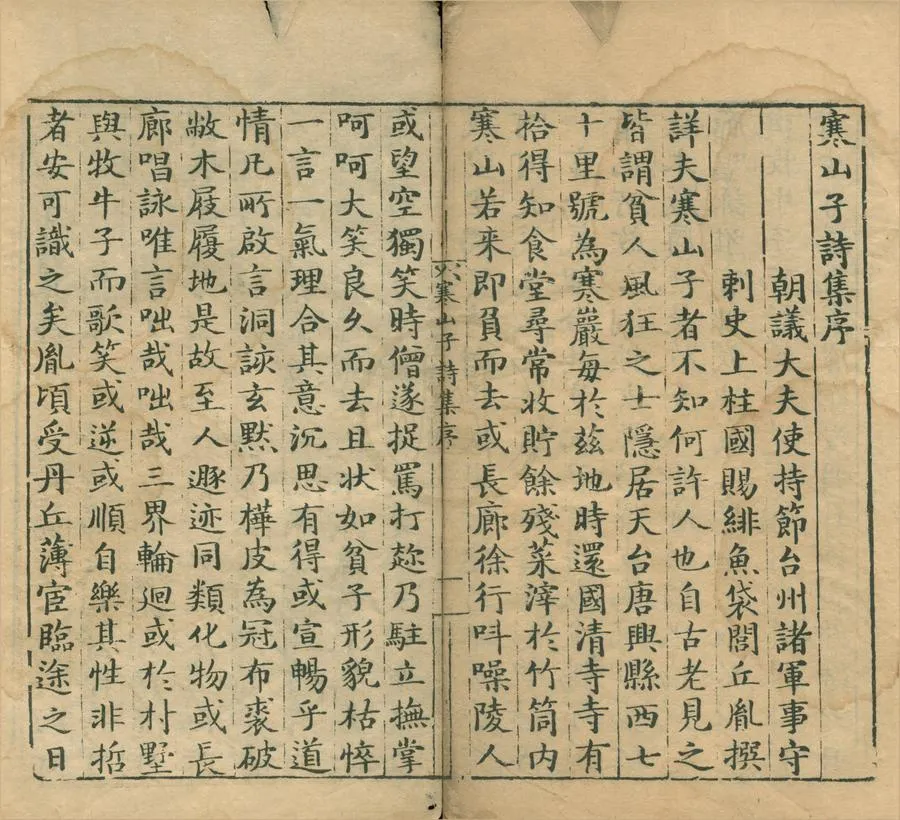 寒山子詩集序
朝議大夫使持節台州諸軍事守
刺史上柱國賜緋魚袋閭丘胤撰
詳夫寒山子者不知何許人也自古老見之
皆謂貧人風狂之士隱居天台唐興縣西七
十里號為寒巖每於茲地時還國清寺寺有
拾得知食堂尋常收貯餘殘菜滓於竹筒內
寒山若來即負而去或長廊徐行叫噪陵人
寒山子詩集序
一
或望空獨笑時僧遂捉罵打趂乃駐立撫掌
呵呵大笑良久而去且狀如貧子形貌枯悴
一言一氣理合其意沉思有得或宣暢乎道
情凡所啟言洞該玄默乃樺皮為冠布裘破
敝木屐履地是故至人遯迹同類化物或長
廊唱詠唯言咄哉咄哉三界輪迴或於村墅
與牧牛子而歌笑或逆或順自樂其性非哲
者安可識之矣胤頃受丹丘薄宦臨途之日